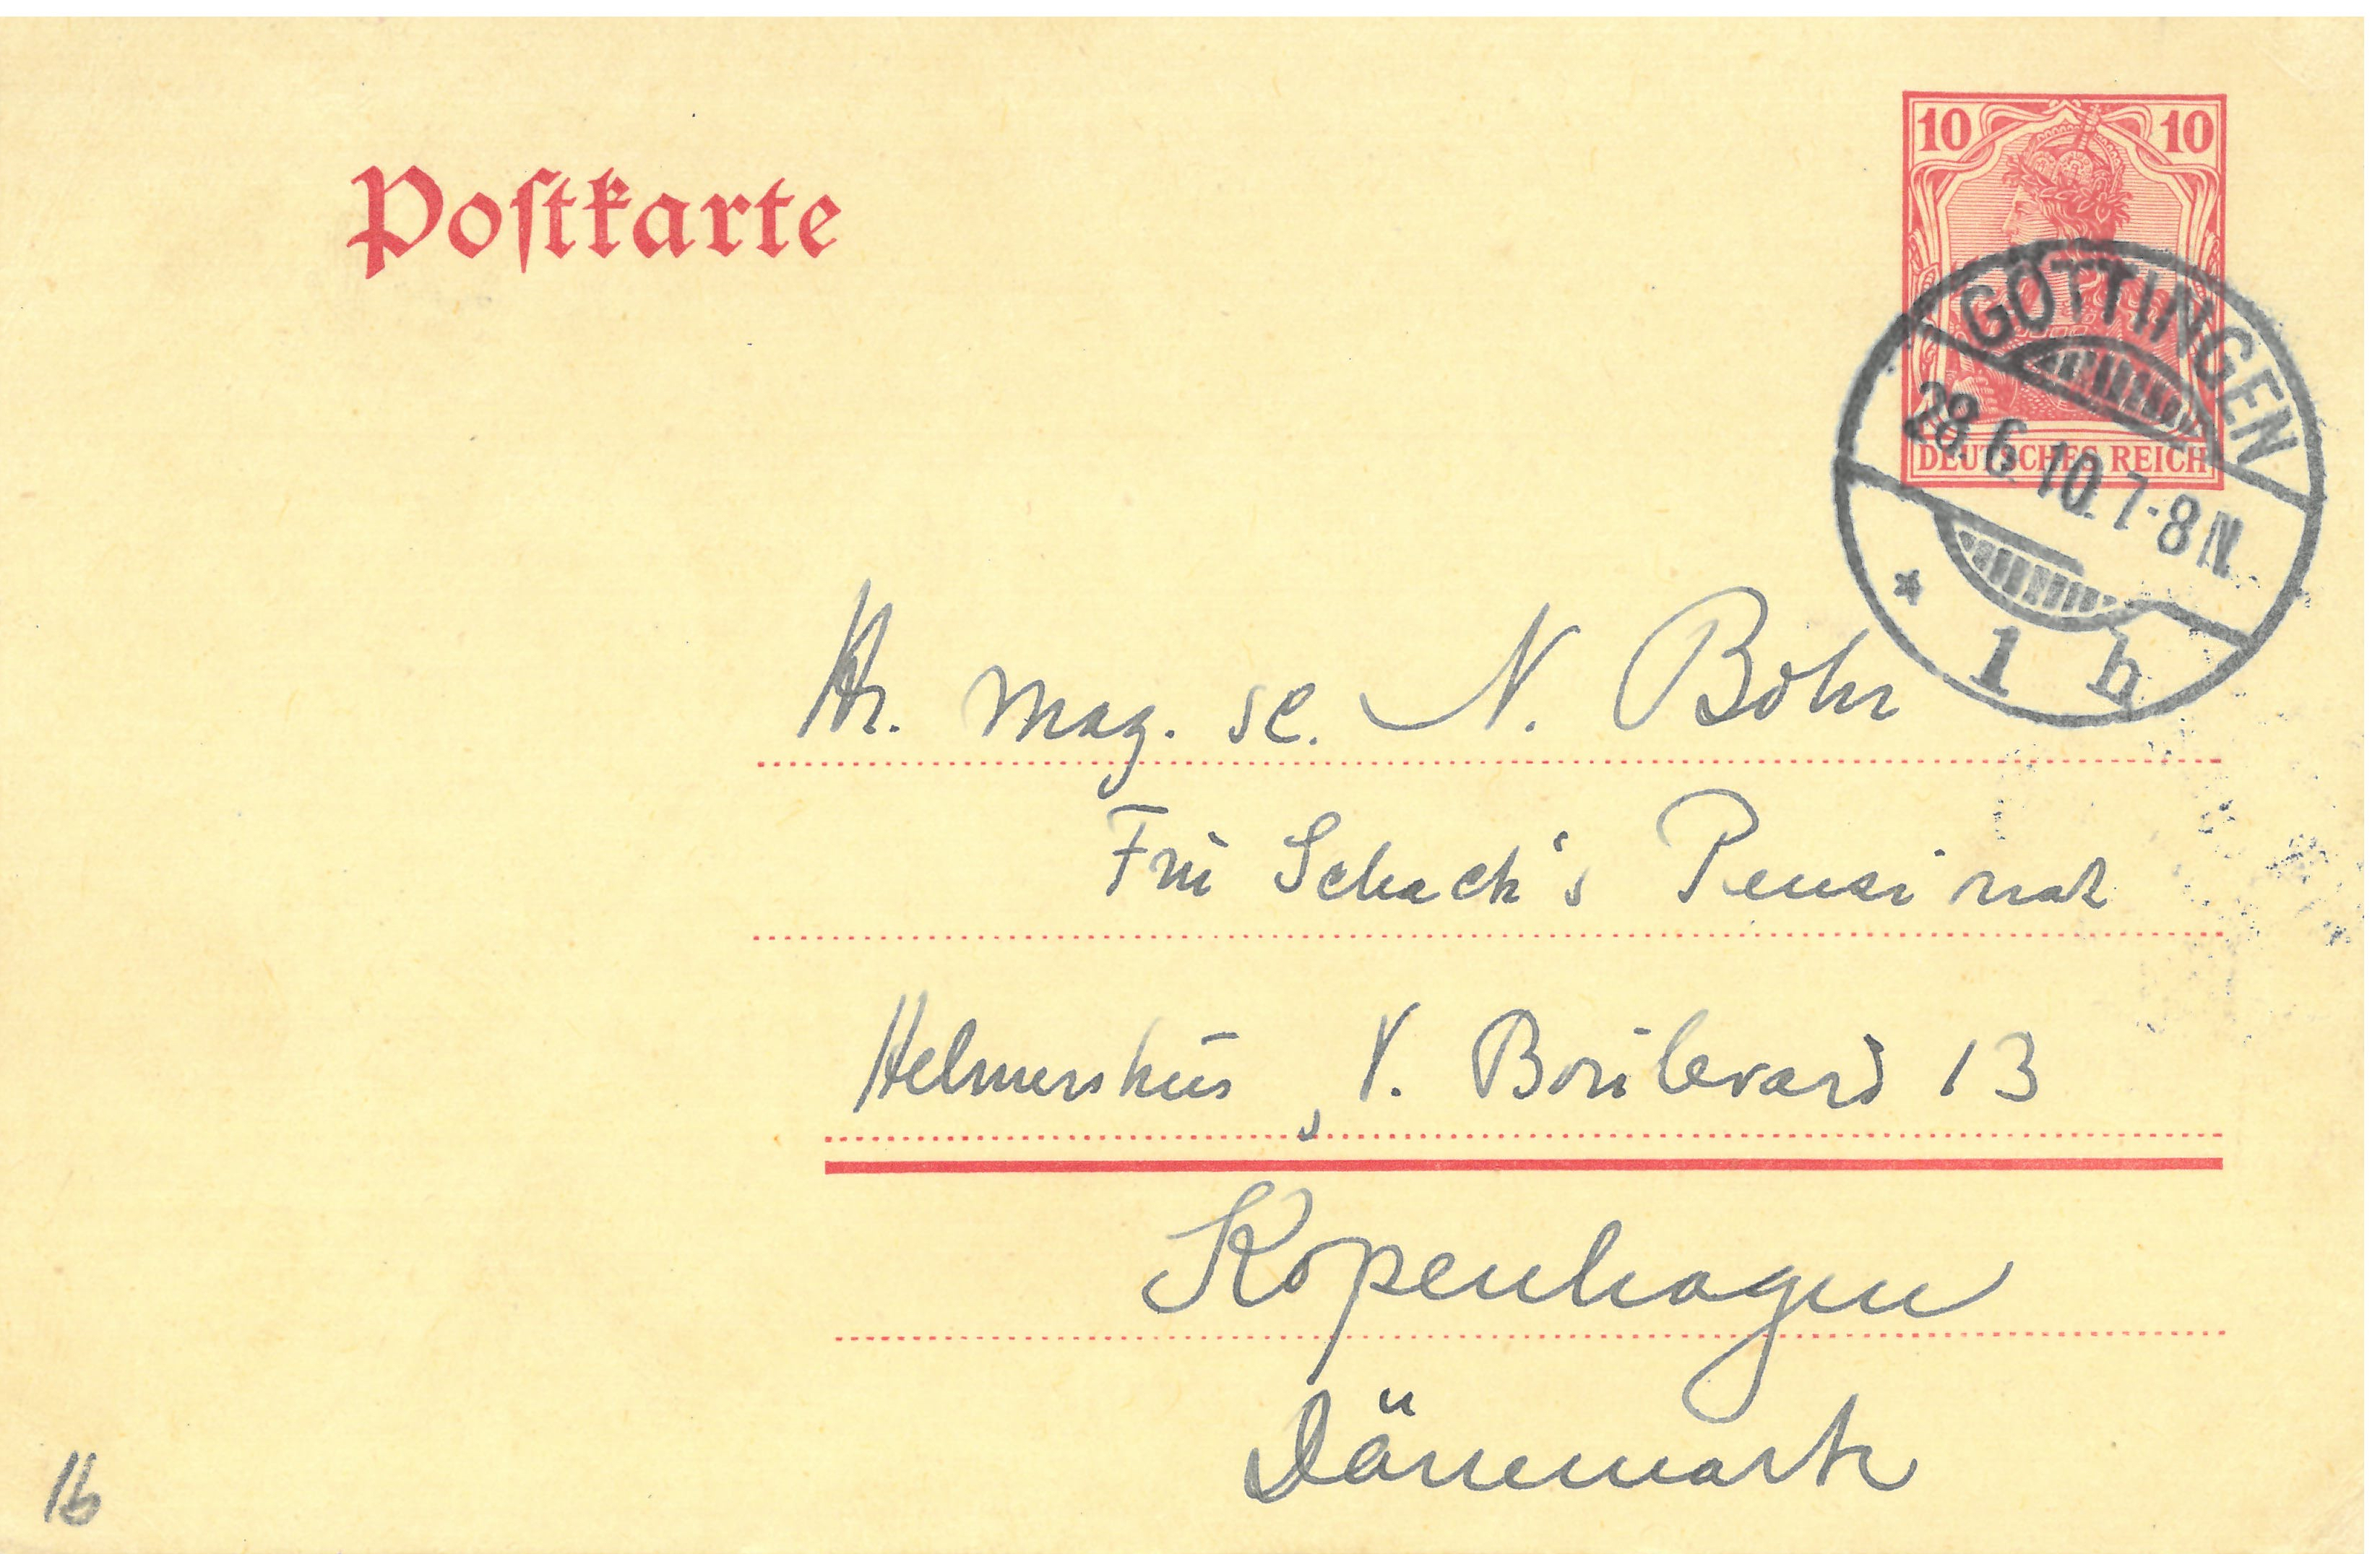 Postkarte
10 10
DEUTSCHES REICH
GÖTTINGEN
28.6.10.7-8N.
* 1 h
Hr. mag. sc. N. Bohr
Frū Schack's Pensionat
Helmershūs, V. Boūlevard 13
Kopenhagen
Dänemark
16